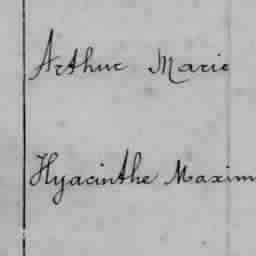 Arthur Marie
Hyacinthe Maxim